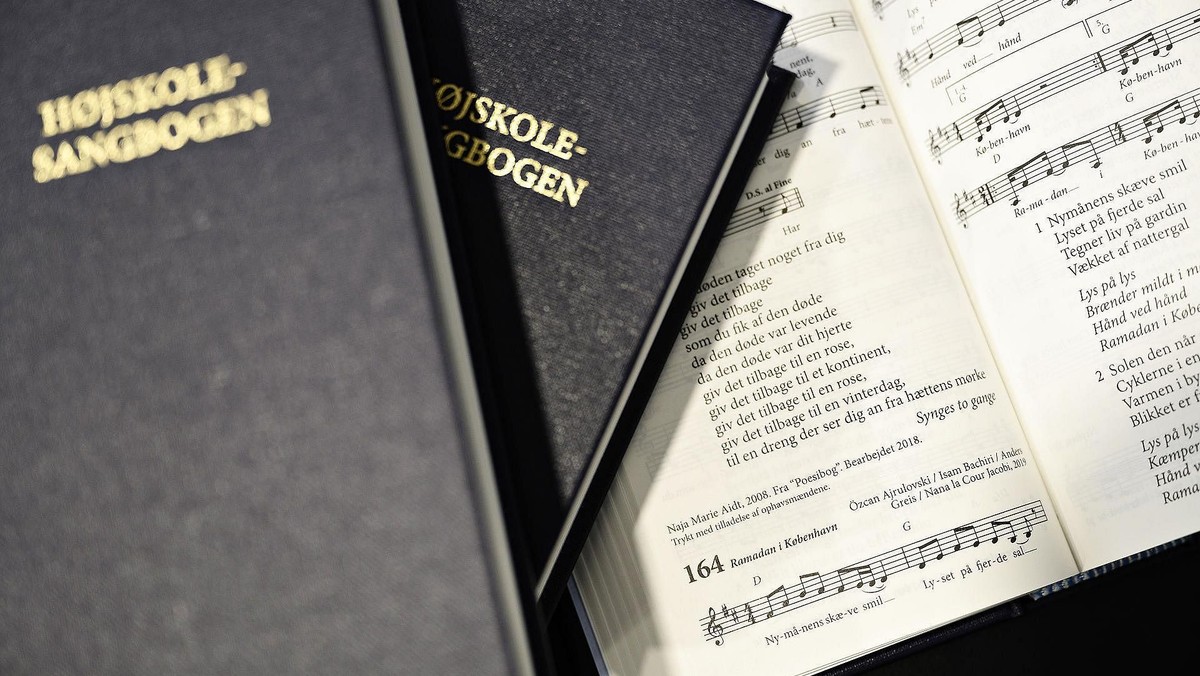 HØJSKOLE-
SANGBOGEN
ØJSKOLE-
GBOGEN
nent,
dag,
A
er dig an
fra hæt-
D.S. al Fine
Har
døden taget noget fra dig
giv det tilbage
giv det tilbage
som du fik af den døde
da den døde var levende
da den døde var dit hjerte
giv det tilbage til en rose,
giv det tilbage til et kontinent,
giv det tilbage til en rose,
giv det tilbage til en vinterdag,
til en dreng der ser dig an fra hættens mørke
Synges to gange
Naja Marie Aidt, 2008. Fra “Poesibog”. Bearbejdet 2018.
Trykt med tilladelse af ophavsmændene.
Özcan Ajrulovski / Isam Bachiri / Anders
Greis / Nana la Cour Jacobi, 2019
164 Ramadan i København
D G
Ny-må-nens skæ-ve smil Ly-set på fjer-de sal
Lys på
Em
Hånd ved hånd
5.
G
1.-4.
G
Kø-ben-havn
Kø-ben-havn
D
G
Kø-ben-hav
Ra-ma-dan i
1 Nymånens skæve smil
Lyset på fjerde sal
Tegner liv på gardin
Vækket af nattergal
Lys på lys
Brænder mildt i m
Hånd ved hånd
Ramadan i Købe
2 Solen den når
Cyklerne i en
Varmen i by
Blikket er f
Lys på lys
Kæmper
Hånd v
Rama